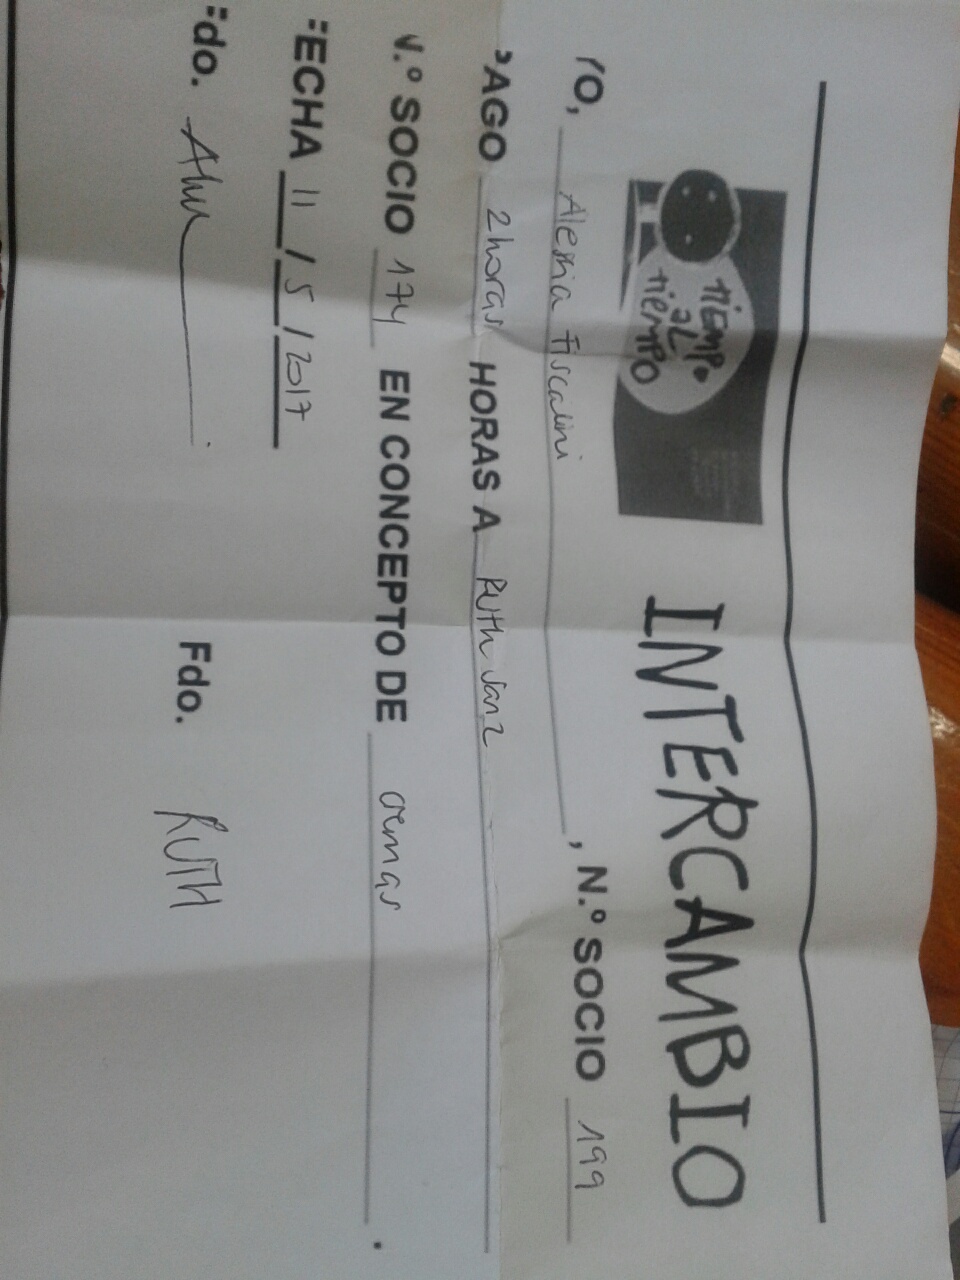 tiEMPO
aL
tiEMPO
INTERCAMBIO
YO, Alessia Fiscalini, N.º SOCIO 199
PAGO 2 horas HORAS A Ruth Sanz
N.º SOCIO 174 EN CONCEPTO DE cremas.
FECHA 11/5/2017
Fdo. Fdo. RUTH